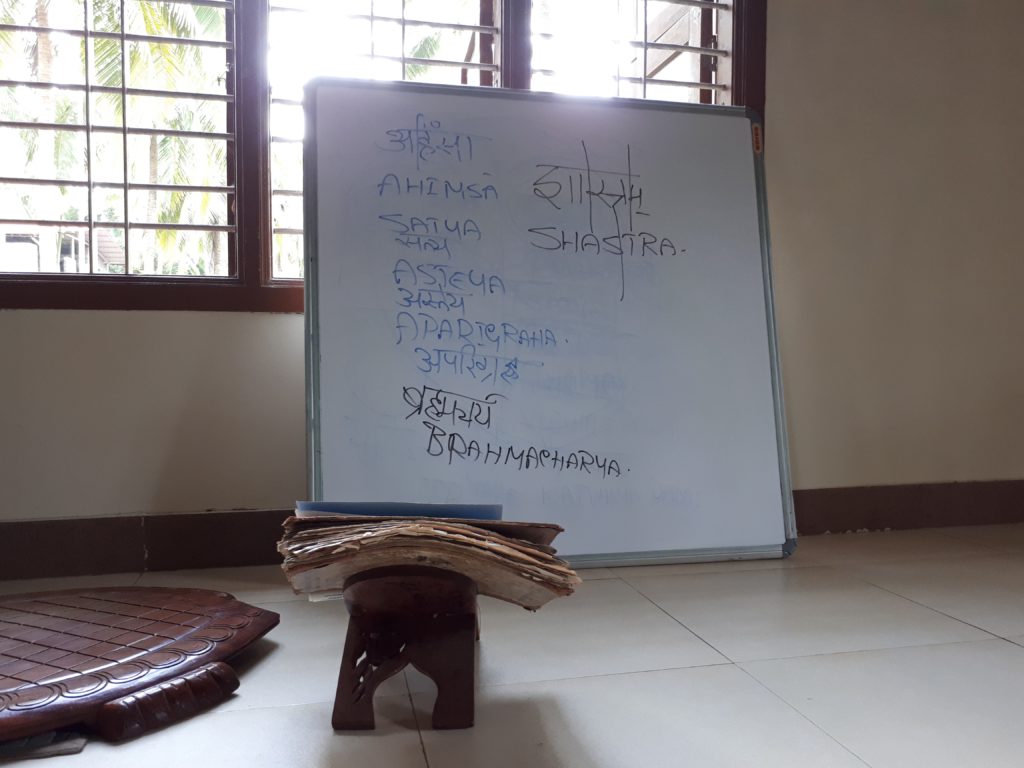 अहिंसा
AHIMSA
SATYA
सत्य
ASTEYA
अस्तेय
APARIGRAHA.
अपरिग्रह
ब्रह्मचर्य
BRAHMACHARYA.
शास्त्रम्
SHASTRA.